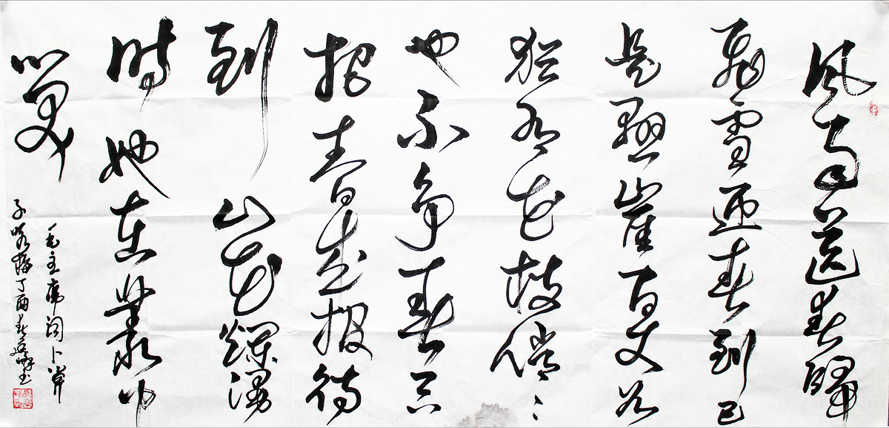 风雨送春歸
飛雪迎春到已
是懸崖百丈冰
犹有花枝俏〻
也不争春只
把春来报待
到山花爛漫
时她在叢中
笑
毛主席词卜算
子咏梅丁酉春书